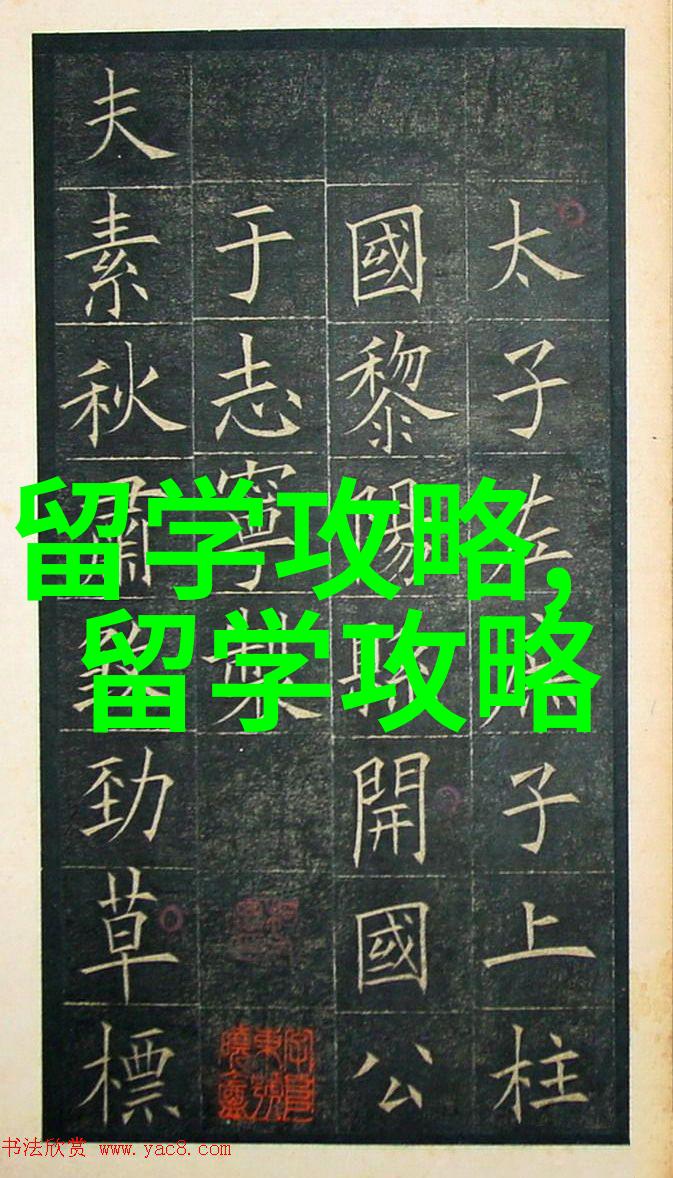 太子左庶子上柱
國黎陽縣開國公
于志寧製
夫素秋肅煞勁草標
留学攻略,
留学攻略
书法欣赏 www.yac8.com